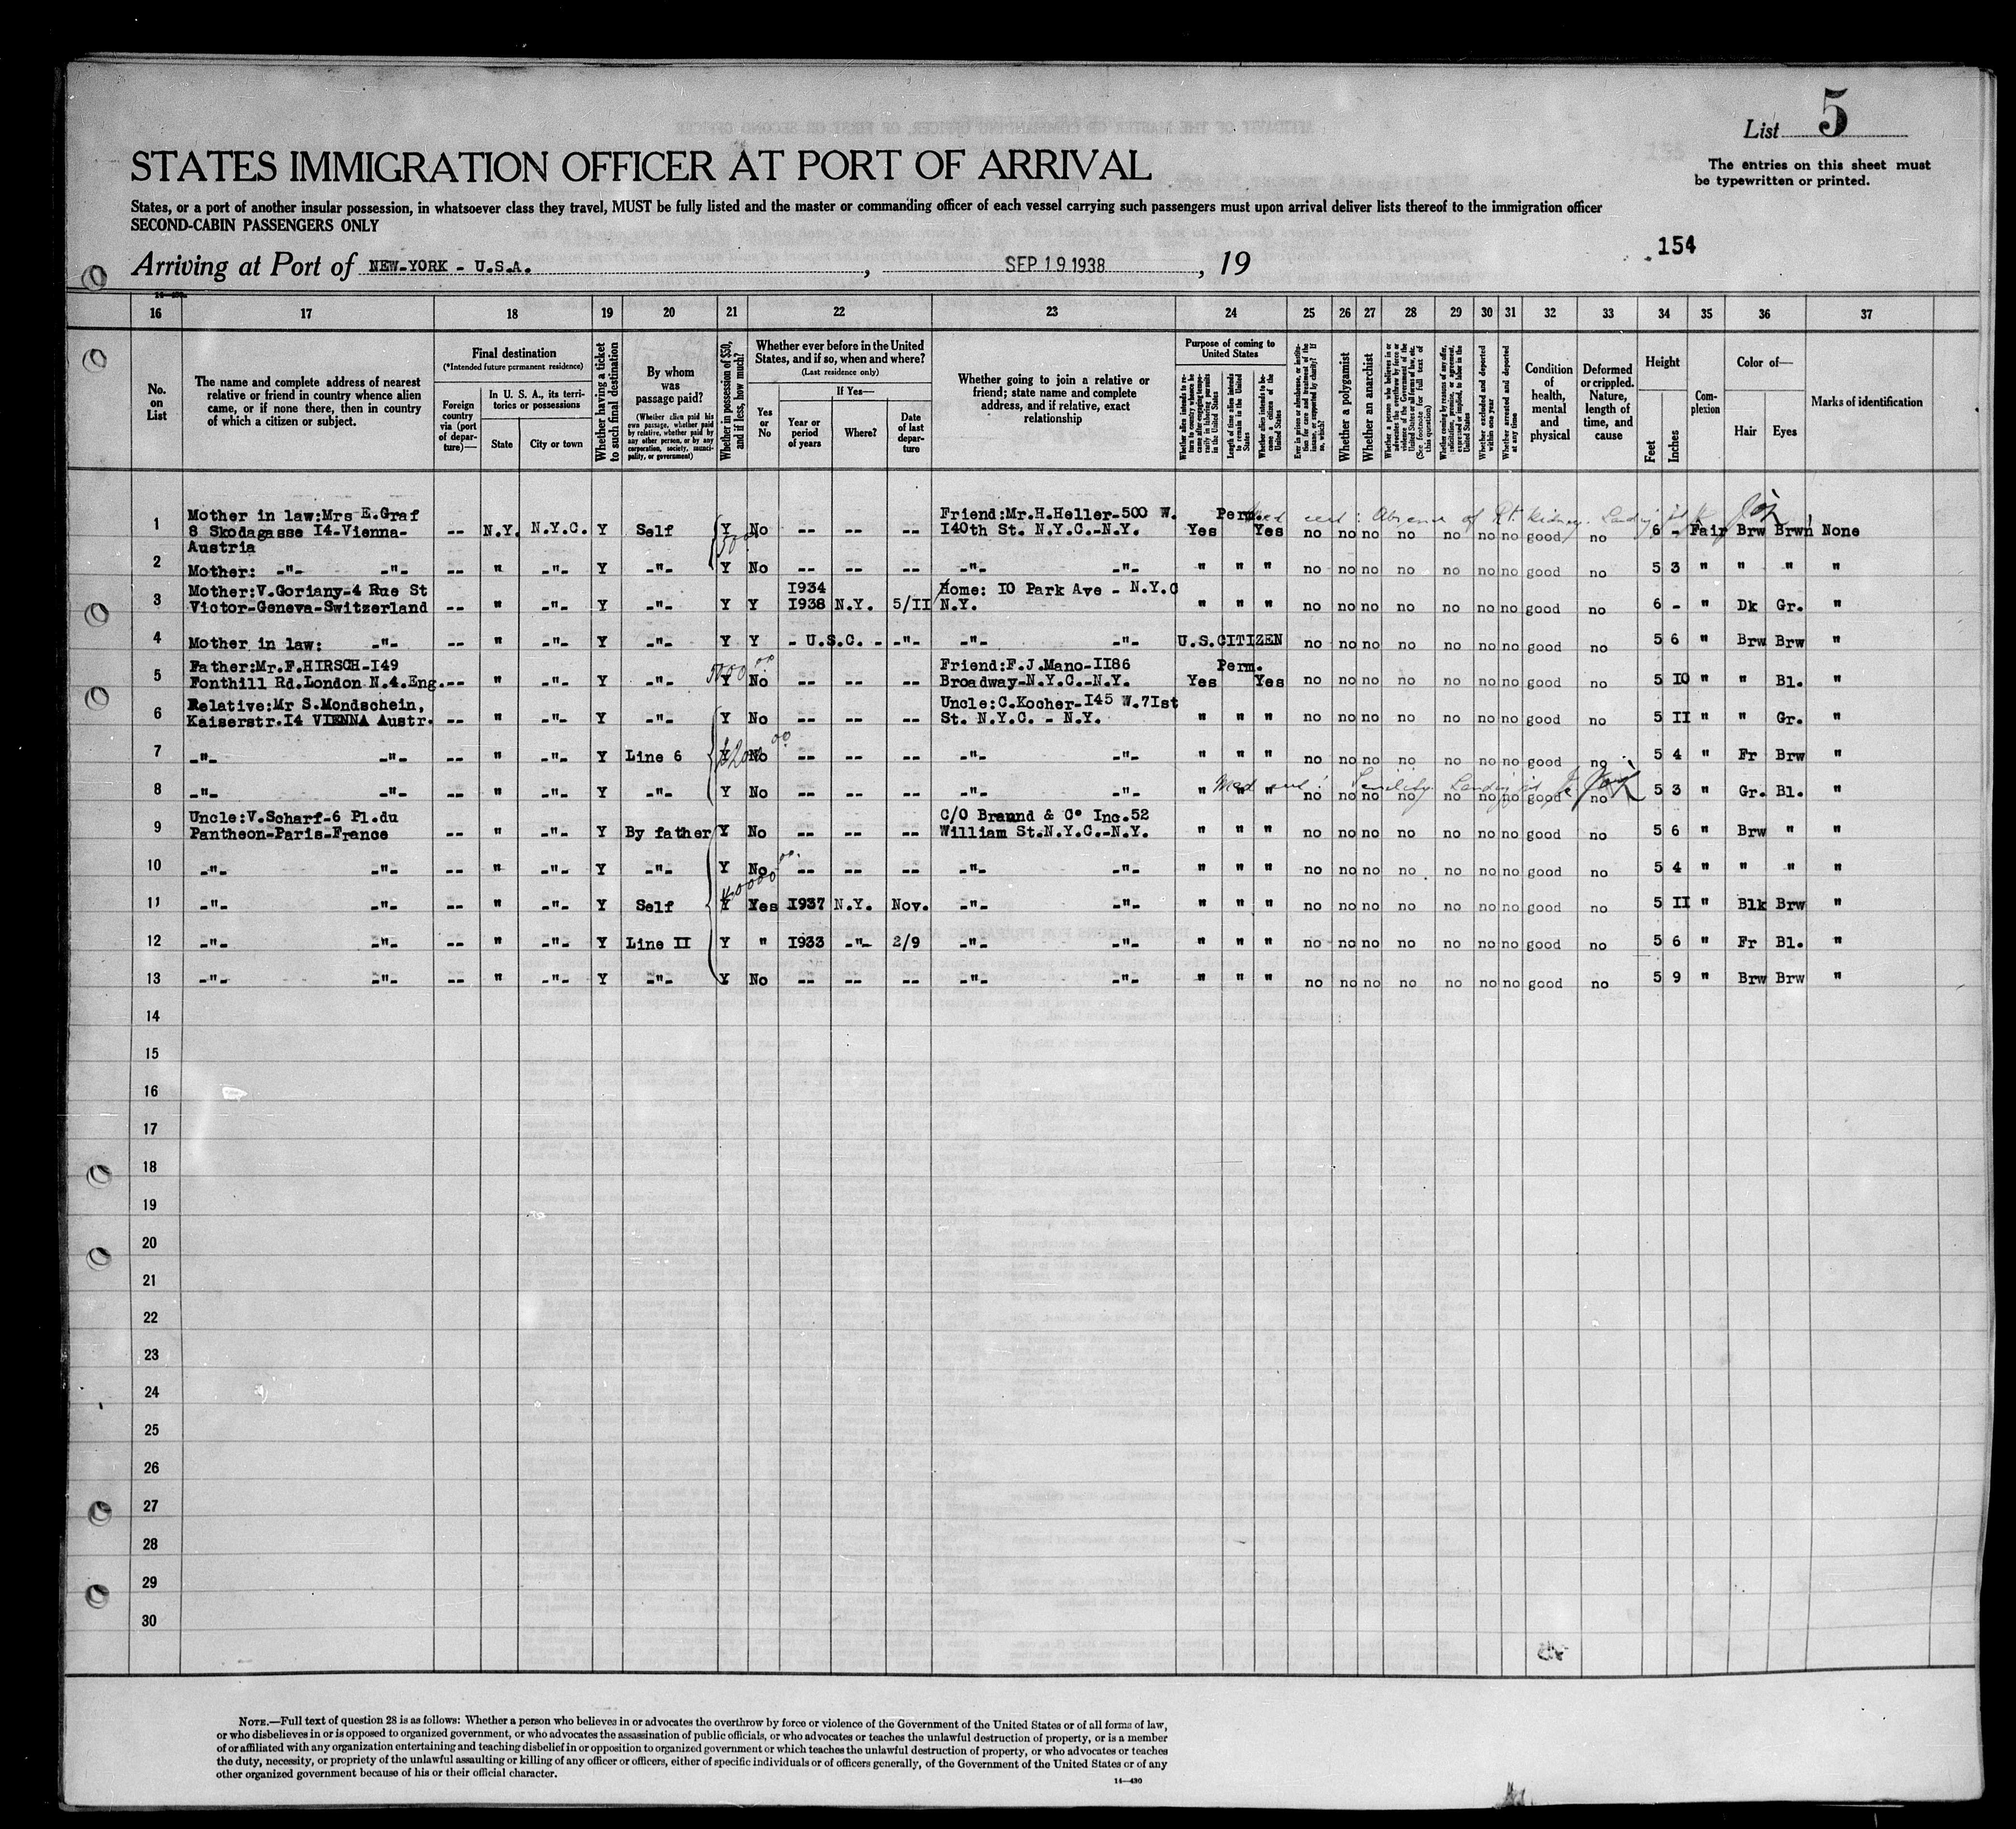 List 5
The entries on this sheet must
be typewritten or printed.
STATES IMMIGRATION OFFICER AT PORT OF ARRIVAL
States, or a port of another insular possession, in whatsoever class they travel, MUST be fully listed and the master or commanding officer of each vessel carrying such passengers must upon arrival deliver lists thereof to the immigration officer
SECOND-CABIN PASSENGERS ONLY
154
Arriving at Port of NEW-YORK - U.S.A. , SEP 19 1938 , 19
16 17 18 19 20 21 22 23 24 25 26 27 28 29 30 31 32 33 34 35 36 37
No. on List
The name and complete address of nearest relative or friend in country whence alien came, or if none there, then in country of which a citizen or subject.
Final destination
(*Intended future permanent residence)
Foreign country via (port of departure)—
In U. S. A., its territories or possessions
State
City or town
Whether having a ticket to such final destination
By whom was passage paid?
(Whether alien paid his own passage, whether paid by relative, whether paid by any other person, or by any corporation, society, municipality, or government)
Whether in possession of $50, and if less, how much?
Whether ever before in the United States, and if so, when and where?
(Last residence only)
Yes or No
If Yes—
Year or period of years
Where?
Date of last departure
Whether going to join a relative or friend; state name and complete address, and if relative, exact relationship
Purpose of coming to United States
Whether alien intends to return to country whence he came after engaging temporarily in laboring pursuits in the United States
Length of time alien intends to remain in the United States
Whether alien intends to become a citizen of the United States
Ever in prison or almshouse, or institution for care and treatment of the insane, or supported by charity? If so, which?
Whether a polygamist
Whether an anarchist
Whether a person who believes in or advocates the overthrow by force or violence of the Government of the United States or all forms of law, etc. (See footnote for full text of this question)
Whether coming by reason of any offer, solicitation, promise, or agreement, expressed or implied, to labor in the United States
Whether excluded and deported within one year
Whether arrested and deported at any time
Condition of health, mental and physical
Deformed or crippled. Nature, length of time, and cause
Height
Feet
Inches
Complexion
Color of—
Hair
Eyes
Marks of identification
Med cert: Absence of Rt. Kidney.
1 Mother in law:Mrs E.Graf 8 Skodagasse I4-Vienna-Austria -- N.Y. N.Y.C. Y Self Y No -- -- -- Friend:Mr.H.Heller-500 W. I40th St. N.Y.C.-N.Y. Yes Perm. Yes no no no no no no no good no 6 - Fair Brw Brwn None
2 Mother: -"- -"- -- " -"- Y -"- Y No -- -- -- -"- -"- " " " no no no no no no no good no 5 3 " " " "
3 Mother:V.Goriany-4 Rue St Victor-Geneva-Switzerland -- " -"- Y -"- Y Y I934 I938 N.Y. 5/II Home: IO Park Ave - N.Y.C N.Y. " " " no no no no no no no good no 6 - " Dk Gr. "
4 Mother in law: -"- -- " -"- Y -"- Y Y - U.S.C. - -"- -"- -"- U.S.CITIZEN no no no no no no no good no 5 6 " Brw Brw "
5 Father:Mr.F.HIRSCH-I49 Fonthill Rd.London N.4.Eng. -- " -"- Y -"- 5000.00 Y No -- -- -- Friend:F.J.Mano-II86 Broadway-N.Y.C.-N.Y. Yes Perm. Yes no no no no no no no good no 5 IO " " Bl. "
6 Relative:Mr S.Mondschein, Kaiserstr.I4 VIENNA Austr. -- " -"- Y -"- Y No -- -- -- Uncle:C.Kocher-I45 W.7Ist St. N.Y.C. - N.Y. " " " no no no no no no no good no 5 II " " Gr. "
7 -"- -"- -- " -"- Y Line 6 Y No -- -- -- -"- -"- " " " no no no no no no no good no 5 4 " Fr Brw "
Med cert: Senility.
8 -"- -"- -- " -"- Y -"- Y No -- -- -- -"- -"- " " " no no no no no no no good no 5 3 " Gr. Bl. "
9 Uncle:V.Scharf-6 Pl.du Pantheon-Paris-France -- " -"- Y By father Y No -- -- -- C/O Braund & C° Inc.52 William St.N.Y.C.-N.Y. " " " no no no no no no no good no 5 6 " Brw " "
10 -"- -"- -- " -"- Y -"- Y No -- -- -- -"- -"- " " " no no no no no no no good no 5 4 " " " "
11 -"- -"- -- " -"- Y Self Y Yes I937 N.Y. Nov. -"- -"- " " " no no no no no no no good no 5 II " Blk Brw "
12 -"- -"- -- " -"- Y Line II Y " I933 -"- 2/9 -"- -"- " " " no no no no no no no good no 5 6 " Fr Bl. "
13 -"- -"- -- " -"- Y -"- Y No -- -- -- -"- -"- " " " no no no no no no no good no 5 9 " Brw Brw "
14
15
16
17
18
19
20
21
22
23
24
25
26
27
28
29
30
NOTE.—Full text of question 28 is as follows: Whether a person who believes in or advocates the overthrow by force or violence of the Government of the United States or of all forms of law,
or who disbelieves in or is opposed to organized government, or who advocates the assassination of public officials, or who advocates or teaches the unlawful destruction of property, or is a member
of or affiliated with any organization entertaining and teaching disbelief in or opposition to organized government or which teaches the unlawful destruction of property, or who advocates or teaches
the duty, necessity, or propriety of the unlawful assaulting or killing of any officer or officers, either of specific individuals or of officers generally, of the Government of the United States or of any
other organized government because of his or their official character.
14—430